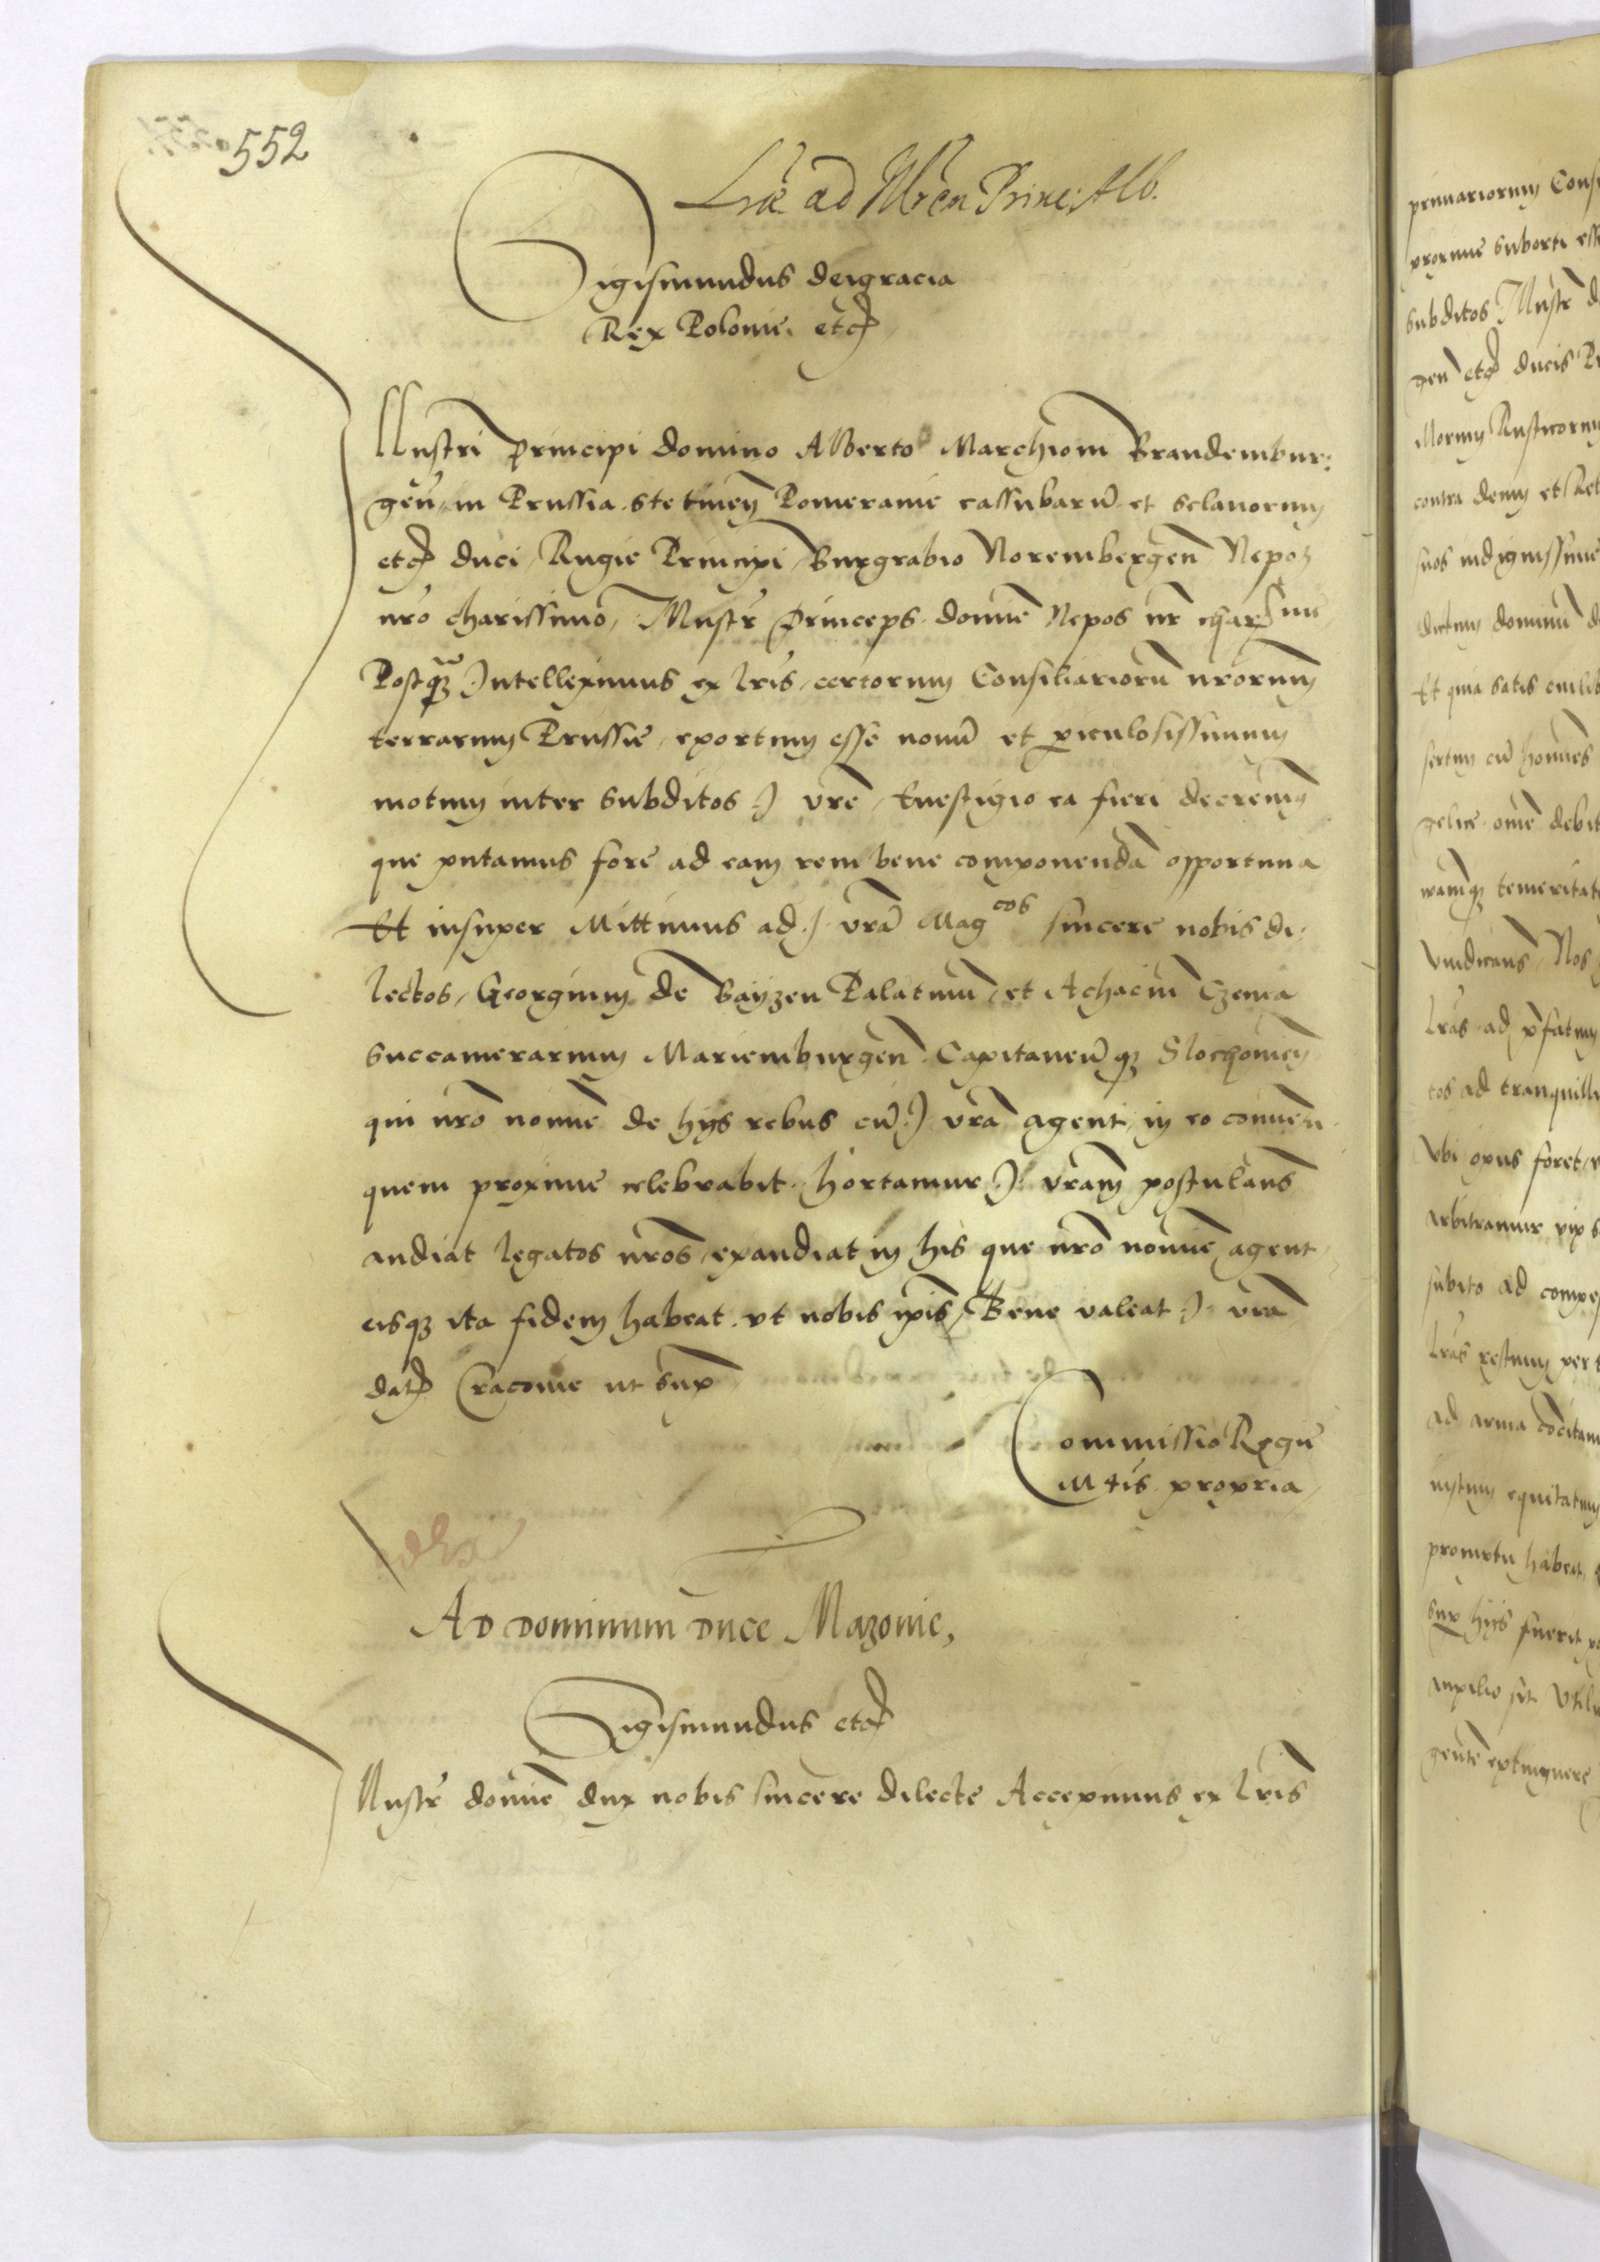 552
Lrae ad Illrem Princ: Alb.
Sigismundus deigracia
Rex Polonie. etc
Illustri Principi domino Alberto Marchioni Brandembur:
gen̄. in Prussia. Stetinen̄ Pomeranie cassubarū et sclauorum
etc duci, Rugie Principi, Burgrabio Norembergen̄ Nepoti
nrō charissimo, Illustr̄ Princeps. domine Nepos nr̄ charme
Postq̄ꝫ Intelleximus ex lris, certorum Consiliariorū nrorum
terrarum Prussie, exortum esse nouū et piculosissimum
motum inter subditos .I. vrē, Euestigio ea fieri decreuim̄
que putamus fore ad eam rem bene componendā opportuna
Et insuper Mittimus ad .I. vrā Magcos sincere nobis di
lectos, Georgium de Bayzen Palatinū, et Achaciū Czema
succamerarium Mariemburgen̄. Capitaneūqꝫ Slochouien̄
qui nrō noīne de hijs rebus cū .I. vrā agent, in eo conuētu
quem proxime celebrabit. hortamur .I. vram̄ postulan̄s
audiat legatos nrōs, exaudiat in his que nrō noīne agent,
eisqꝫ ita fidem habeat. vt nobis ip̄is, Bene valeat .I. vrā
dat Cracouie ut supͣ
Commissio Regie
Mtis propria,
Ad dominum duce Mazouie,
Sigismundus etc
Illustr̄ domine dux nobis sincere dilecte Accepimus ex lris
primariorum Cons
proxime suborti ess
subditos Illustr̄ d
gen̄ etc ducis Pr
illorum Rusticorum
contra deum et
suos indignissime
dictum dominū d
Et quia satis
sertim cū homines
gelice omē debit
temeritat
Vindicans, Nos
lras ad pfatum
tos ad tranquilli
Vbi opus foret,
arbitramur vix s
subito ad compes
lras
ad arma
equitatum
promptu habeat,
hijs fuerit
auxilio sit Vtil
extinguere